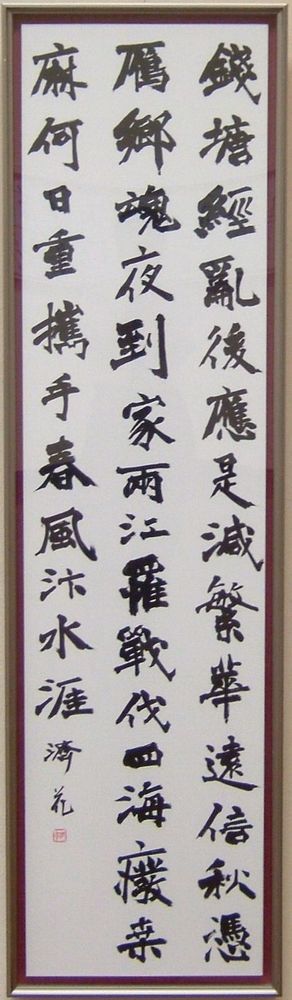 錢塘經亂後應是減繁華遠信秋憑
鴈鄉魂夜到家兩江罹戰伐四海癈桒
麻何日重攜手春風汴水涯 濟花